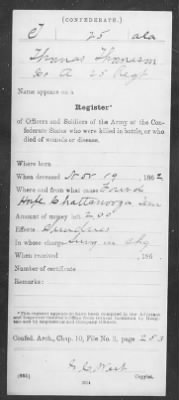 (CONFEDERATE.)
T 25 Ala
Thomas Thomason
Co A 25 Regt
Name appears on a
Register*
of Officers and Soldiers of the Army of the Confederate States who were killed in battle, or who
died of wounds or disease.
Where born
When deceased Nov 19, 1862
Where and from what cause Found
Hosp Chattanooga Ten
Amount of money left 2.00
Effects Sundries
In whose charge Surg in chg
When received , 186
Number of certificate
Remarks:
Confed. Arch., Chap. 10, File No. 2, page 283
Copyist.